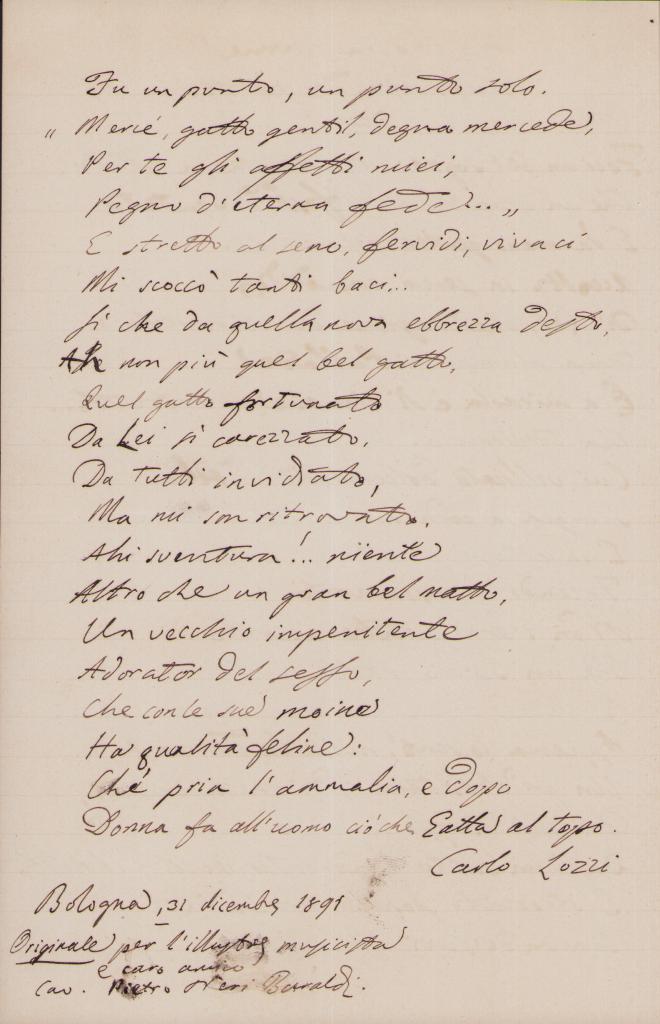 Fu un punto, un punto solo.
„ Mercé, gatto gentil, degna mercede,
Per te gli affetti miei,
Pegno d'eterna fede... „
E stretto al seno, fervidi, vivaci
Mi scoccò tanti baci...
Sì che da quella nova ebbrezza desto,
Ahi non più quel bel gatto,
Quel gatto fortunato
Da Lei sì carezzato,
Da tutti invidiato,
Ma mi son ritrovato,
Ahi sventura!.. niente
Altro che un gran bel matto,
Un vecchio impenitente
Adorator del sesso,
Che con le sue moine
Ha qualità feline:
Ché pria l'ammalia, e dopo
Donna fa all'uomo ciò che Gatta al topo.
Carlo Lozzi
Bologna, 31 dicembre 1891
Originale per l'illustre musicista
e caro amico
Cav. Pietro Neri Baraldi.